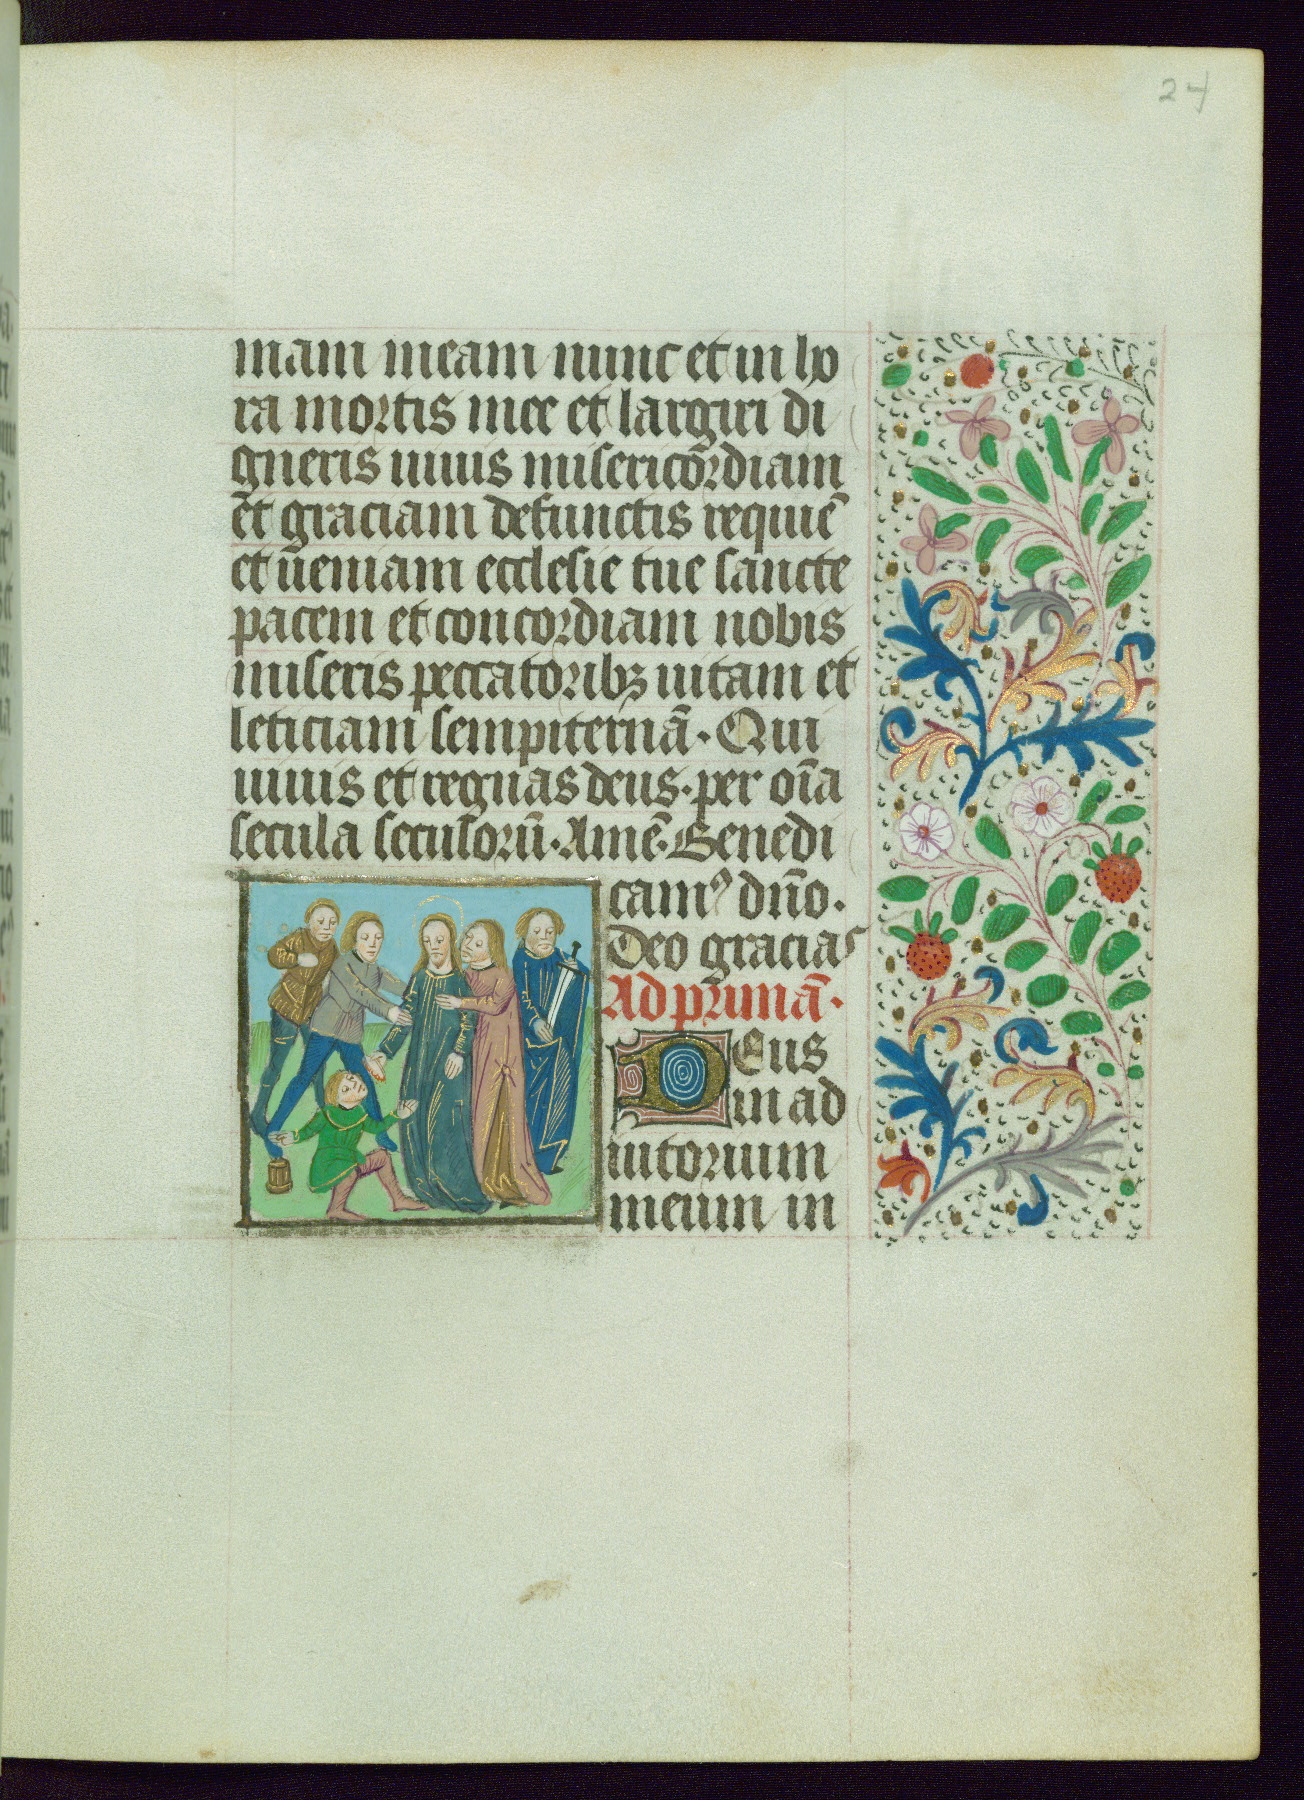 24
mam meam nunc et in ho
ra mortis mee et largiri di
gneris uiuis misericordiam
et graciam defunctis requiē
et ueniam ecclesie tue sancte
pacem et concordiam nobis
miseris peccatoribꝫ uitam et
leticiam sempiternā · Qui
uiuis et regnas deus · per oīa
secula seculorū · Amē · Benedi
camꝰ dn̄o ·
Deo gracias
Ad primā ·
Deus
in ad
iutorium
meum in